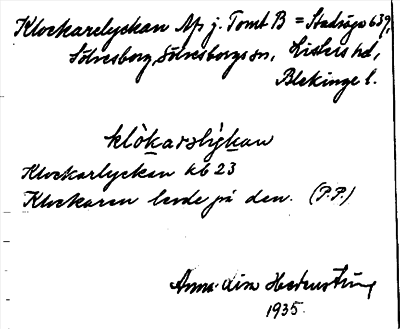 Klockarelyckan Ap j. Tomt B = Stadsäga 639,
Sölvesborg, Sölvesborgs sn, Listers hd,
Blekinge l.
klòkarslýkan
Klockarlyckan kb 23
Klockaren levde på den. (P.P.)
Anna-Lisa
1935.